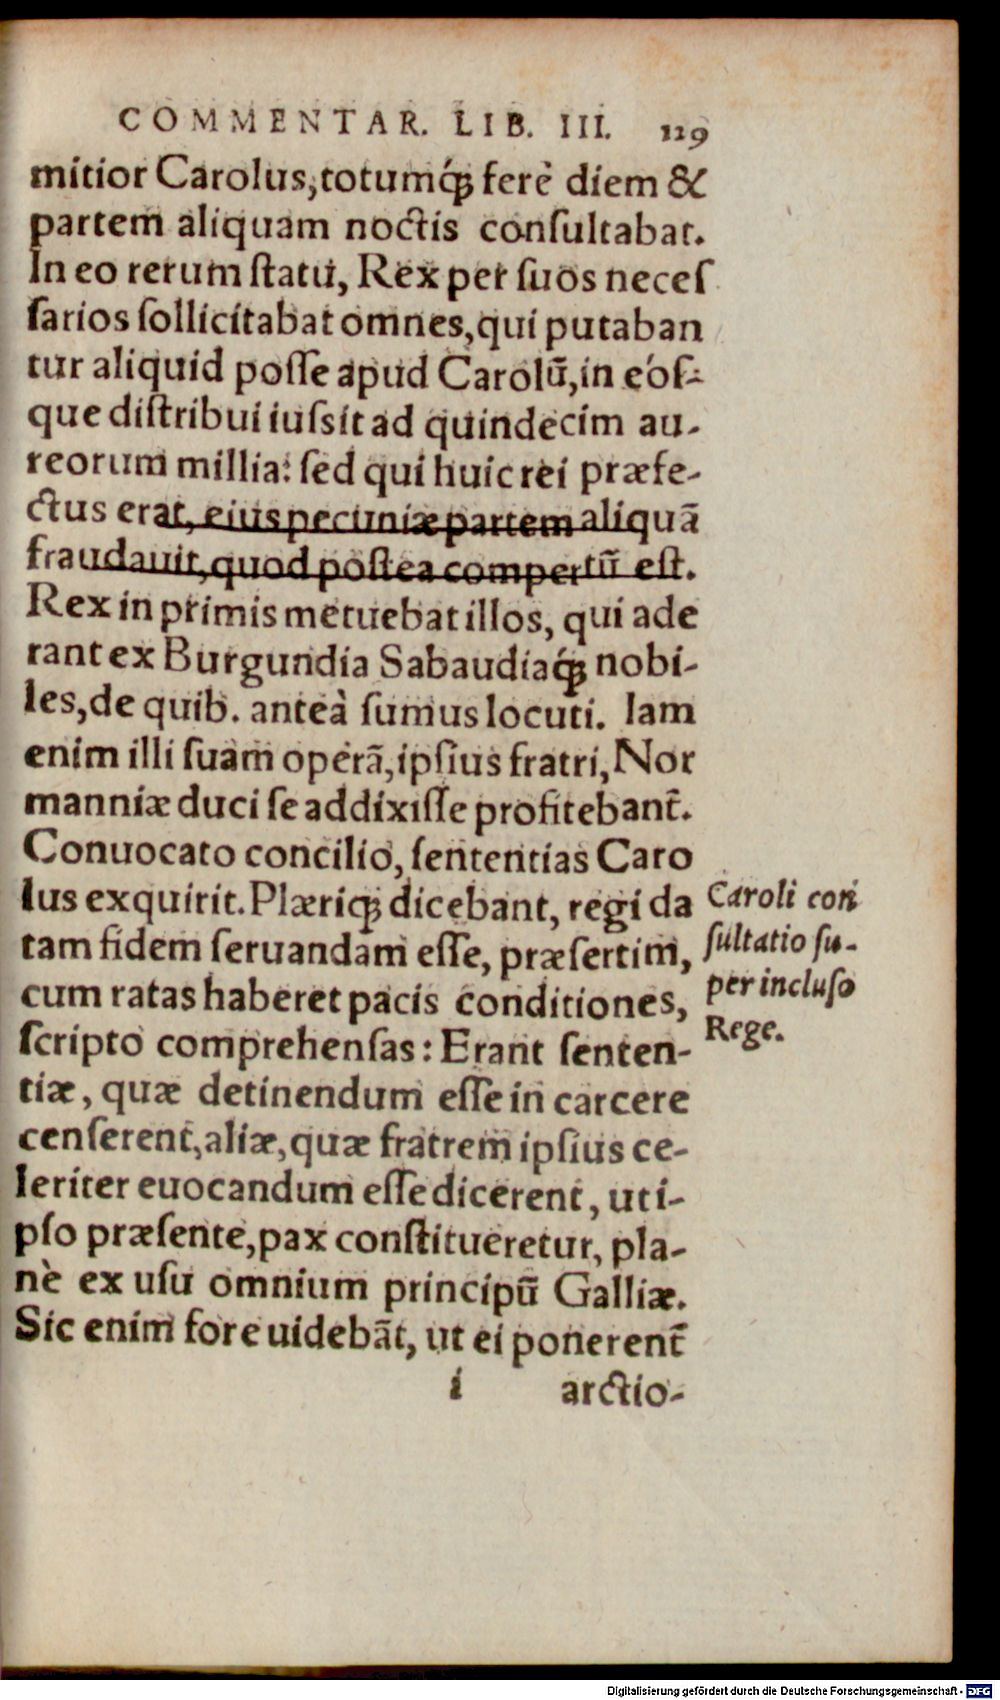 COMMENTAR. LIB. III. 129
mitior Carolus, totumq́; ferè diem &
partem aliquam noctis consultabat.
In eo rerum statu, Rex per suos neces
sarios sollicitabat omnes, qui putaban
tur aliquid posse apud Carolū, in eós-
que distribui iussit ad quindecim au-
reorum millia: sed qui huic rei præfe-
ctus erat, eius pecuniæ partem aliquā
fraudauit, quod postea compertū est.
Rex in primis metuebat illos, qui ade
rant ex Burgundia Sabaudiaq́; nobi-
les, de quib. anteà sumus locuti. Iam
enim illi suam operā, ipsius fratri, Nor
manniæ duci se addixisse profitebant̃.
Conuocato concilio, sententias Caro
lus exquirit. Plæriq́; dicebant, regi da
tam fidem seruandam esse, præsertim,
cum ratas haberet pacis conditiones,
scripto comprehensas: Erant senten-
tiæ, quæ detinendum esse in carcere
censerent, aliæ, quæ fratrem ipsius ce-
leriter euocandum esse dicerent, ut i-
pso præsente, pax constitueretur, pla-
nè ex usu omnium principū Galliæ.
Sic enim fore uidebāt, ut ei ponerent̃
i arctio-
Caroli con
sultatio su-
per incluso
Rege.
Digitalisierung gefördert durch die Deutsche Forschungsgemeinschaft - DFG